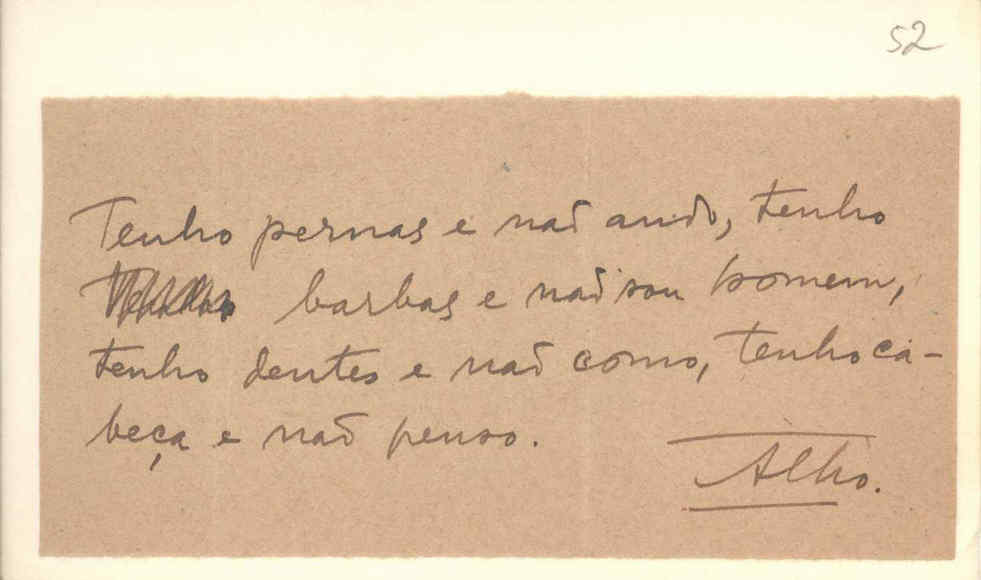 52
Tenho pernas e não ando, tenho
barbas e não sou homem,
tenho dentes e não como, tenho ca-
beça e não penso.
Alho.